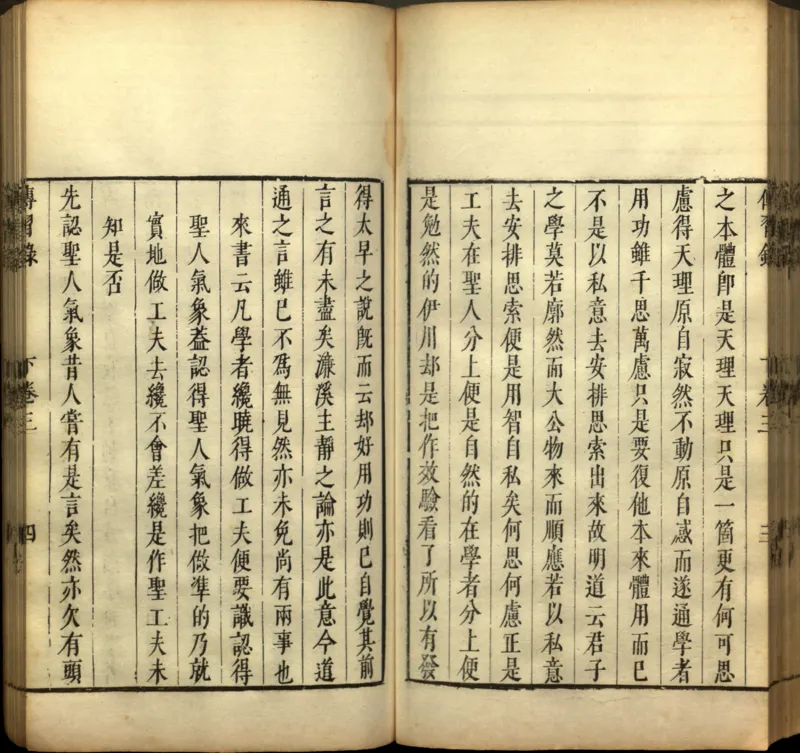 之本體卽是天理天理只是一箇更有何可思
慮得天理原自寂然不動原自感而遂通學者
用功雖千思萬慮只是要復他本來體用而已
不是以私意去安排思索出來故明道云君子
之學莫若廓然而大公物來而順應若以私意
去安排思索便是用智自私矣何思何慮正是
工夫在聖人分上便是自然的在學者分上便
是勉然的伊川却是把作效驗看了所以有發
得太早之說旣而云却好用功則已自覺其前
言之有未盡矣濂溪主靜之論亦是此意今道
通之言雖已不爲無見然亦未免尚有兩事也
來書云凡學者纔曉得做工夫便要識認得
聖人氣象葢認得聖人氣象把做準的乃就
實地做工夫去纔不會差纔是作聖工夫未
知是否
先認聖人氣象昔人嘗有是言矣然亦欠有頭
傳習錄
下卷三
四